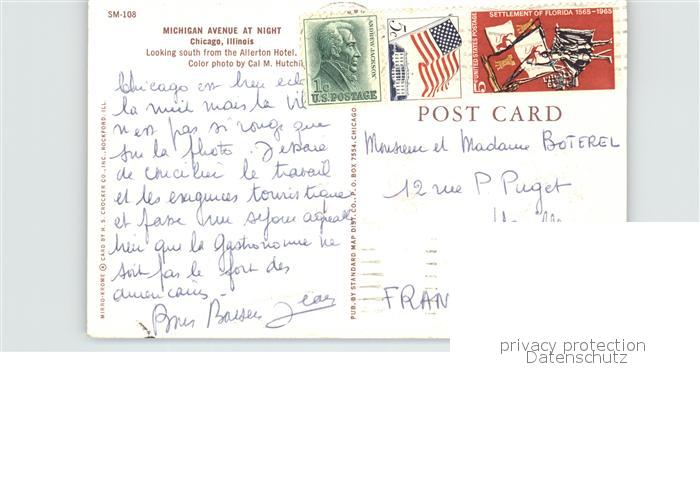 SM-108
MICHIGAN AVENUE AT NIGHT
Chicago, Illinois
Looking south from the Allerton Hotel.
Color photo by Cal M. Hutchi
Chicago est bien ecl
la nuit mais la vil
n'est pas si rouge que
sur la photo. J'essaie
de concilier le travail
et les exigences touristiques
et passe un séjour agréable
bien que la Gastronomie ne
soit pas le fort des
américains -
Bons Baisers Jean
MIRRO-KROME ® CARD BY H. S. CROCKER CO., INC., ROCKFORD, ILL.
PUB. BY STANDARD MAP DIST. CO., P. O. BOX 7554, CHICAGO
1c
U.S. POSTAGE
ANDREW JACKSON
5c
SETTLEMENT OF FLORIDA 1565-1965
UNITED STATES POSTAGE
5c
POST CARD
Monsieur et Madame BOTEREL
12 rue P. Puget
FRAN
privacy protection
Datenschutz